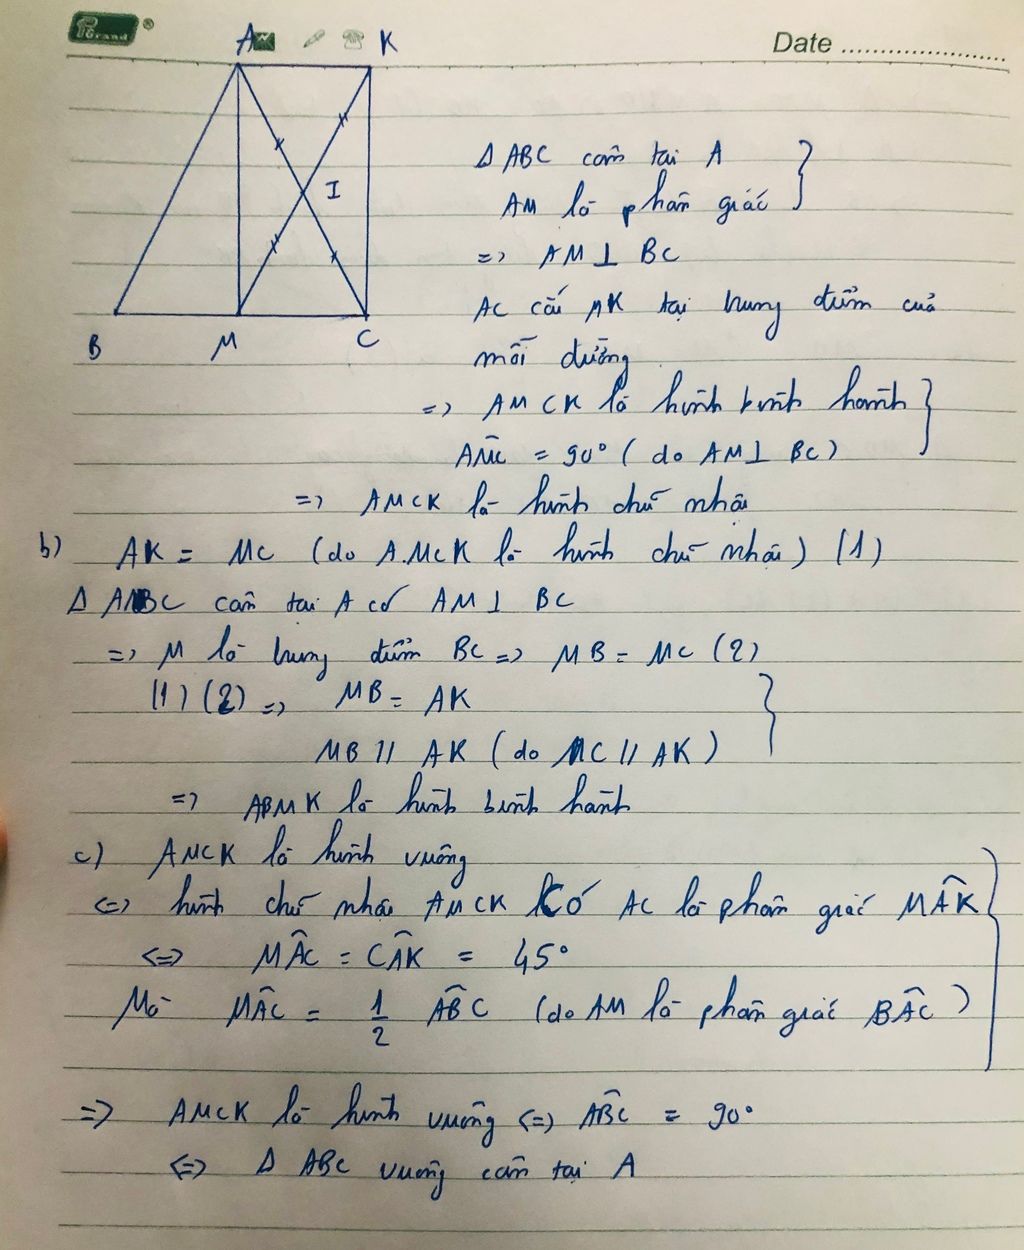 Grand ®
Date
A K
I
B M C
Δ ABC cân tại A
AM là phân giác
=> AM ⊥ BC
AC cắt MK tại trung điểm của
mỗi đường
=> AMCK là hình bình hành
AMC = 90° ( do AM ⊥ BC )
=> AMCK là hình chữ nhật
b) AK = MC (do AMCK là hình chữ nhật) (1)
Δ ABC cân tại A có AM ⊥ BC
=> M là trung điểm BC => MB = MC (2)
(1) (2) => MB = AK
MB // AK ( do MC // AK )
=> ABMK là hình bình hành
c) AMCK là hình vuông
<=> hình chữ nhật AMCK có AC là phân giác MAK
<=> MAC = CAK = 45°
Mà MAC = 1/2 ABC (do AM là phân giác BAC )
=> AMCK là hình vuông <=> ABC = 90°
<=> Δ ABC vuông cân tại A